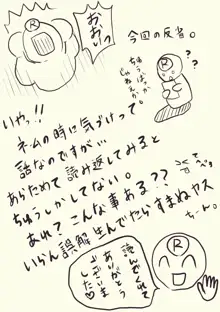 今回の反省。
おおいっ
ちゅうばっか
じゃねえか。
いやっ!!
ネームの時に気づけって
話なのですが…
あらためて読み返してみると
ちゅうしかしてない。
あれ?こんな事ある??
いらん誤解生んでたらすまぬヤス
ちーん。
読んでくれて
ありがとう
ございま
した♡
R
R
R